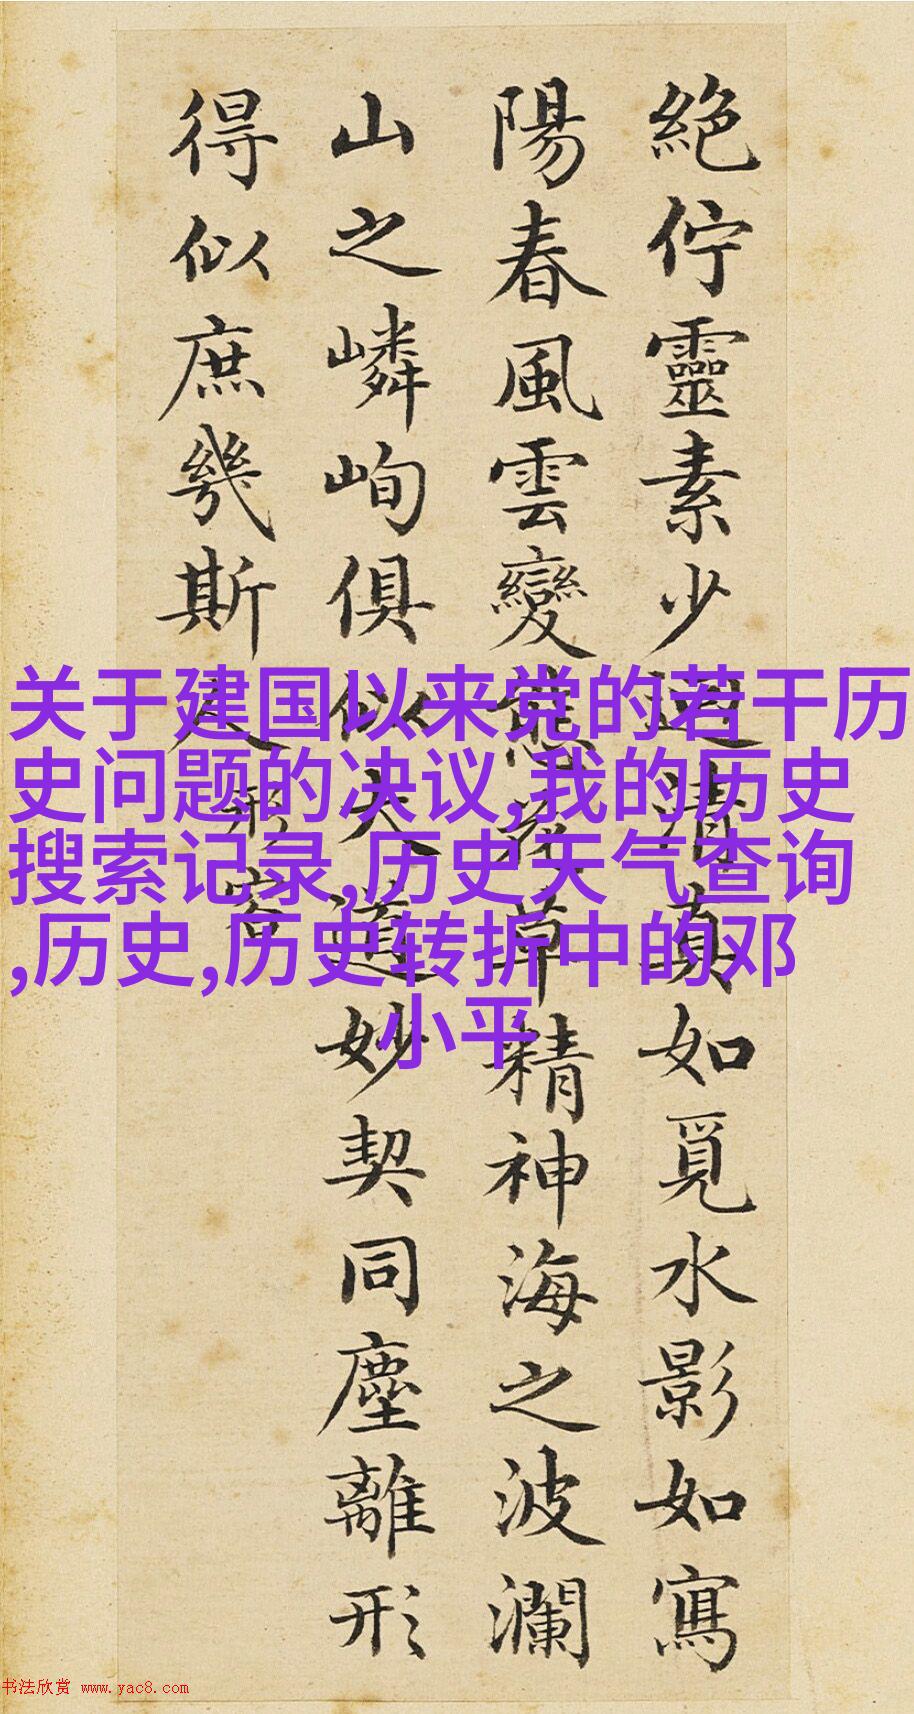 絕佇靈素少迴清真如覓水影如寫
陽春風雲變態花草精神海之波瀾
山之嶙峋俱似大道妙契同塵離形
得似庶幾斯人
形容
关于建国以来党的若干历
史问题的决议,我的历史
搜索记录,历史天气查询
,历史,历史转折中的邓
小平
书法欣赏 www.yac8.com